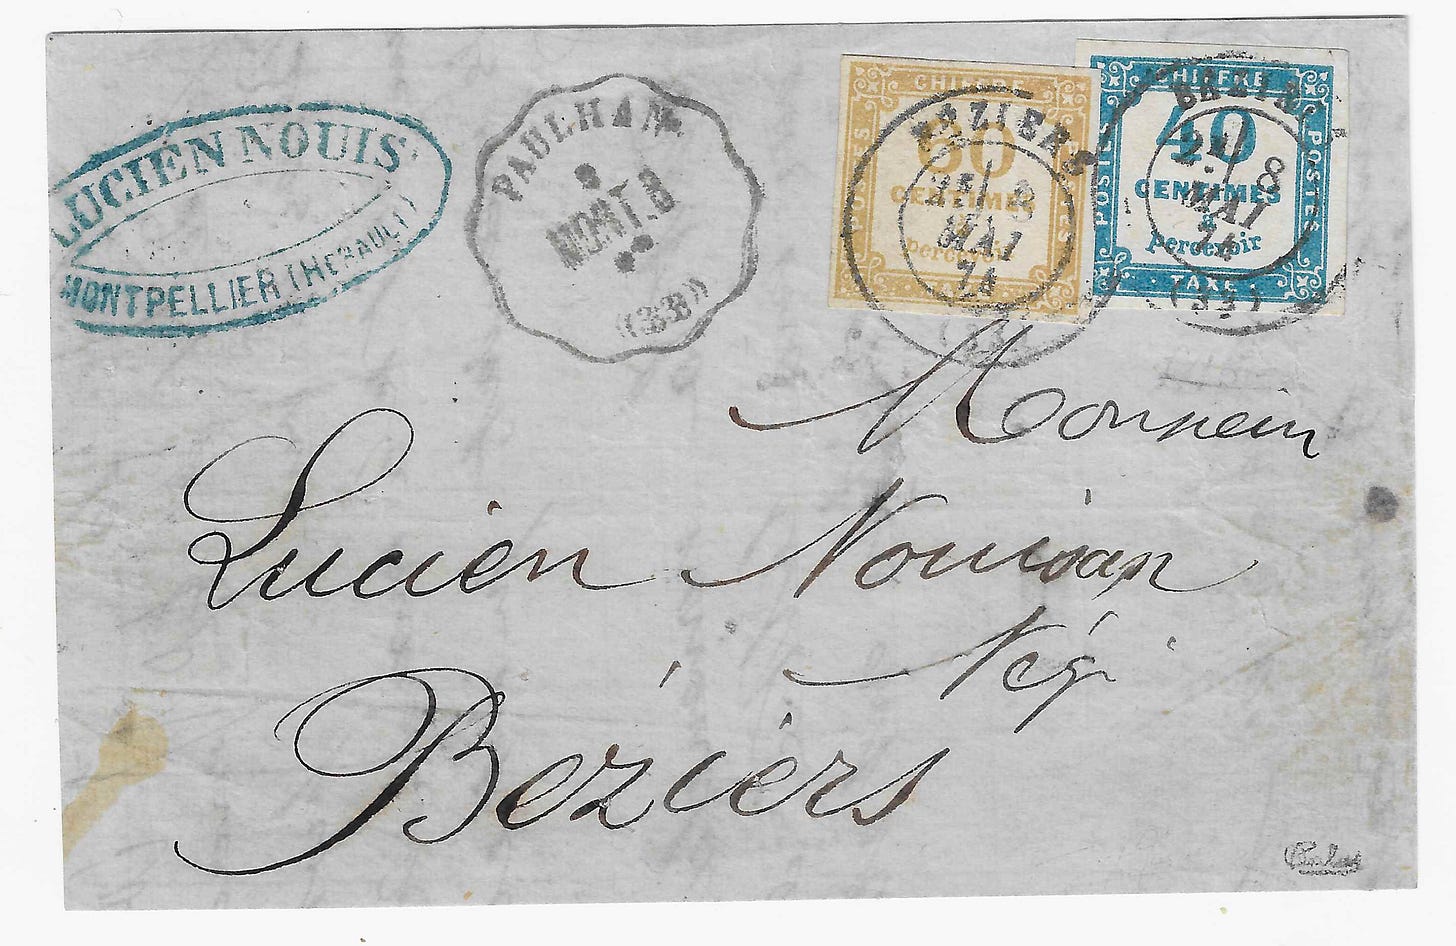 LUCIEN NOUIS
MONTPELLIER (HERAULT)
PAULHAN
MONT.
CHIFFRE
POSTES
60
CENTIMES
à
percevoir
TAXE
BEZIERS
8
MAI
74
CHIFFRE
POSTES
POSTES
40
CENTIMES
à
percevoir
TAXE
BEZIE
8
MAI
74
(33)
Monsieur
Lucien
Négt
Béziers